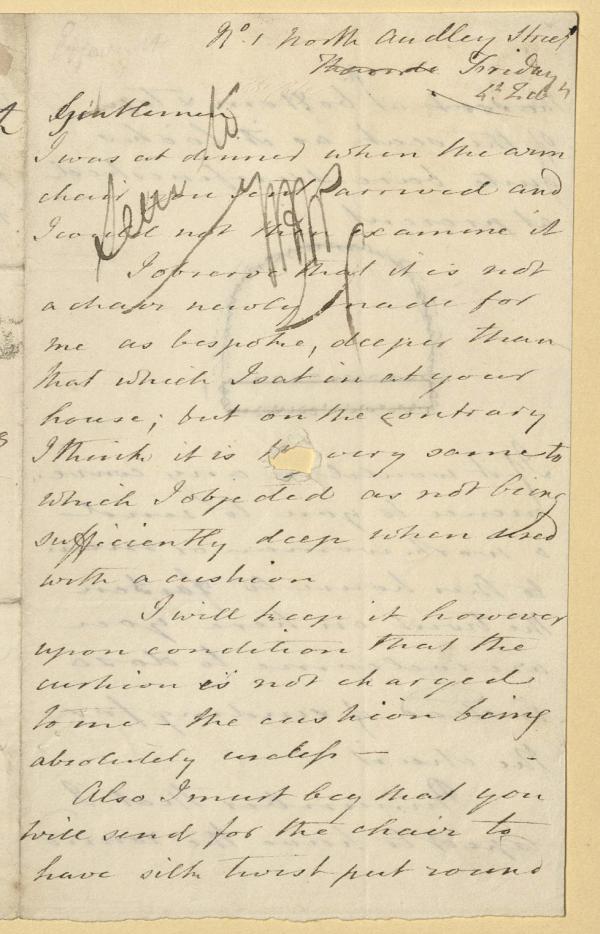 No. 1 North Audley Street
Friday
Gentlemen
I was at dinner when the arm
chair you sent arrived and
I could not then examine it
I observe that it is not
a chair newly made for
me as bespoke, deeper than
that which I sat in at your
house; but on the contrary
I think it is very same to
which I objected as not being
sufficiently deep when used
with a cushion
I will keep it however
upon condition that the
cushion is not charged
to me - the cushion being
absolutely useless -
Also I must beg that you
will send for the chair to
have silk twist put round